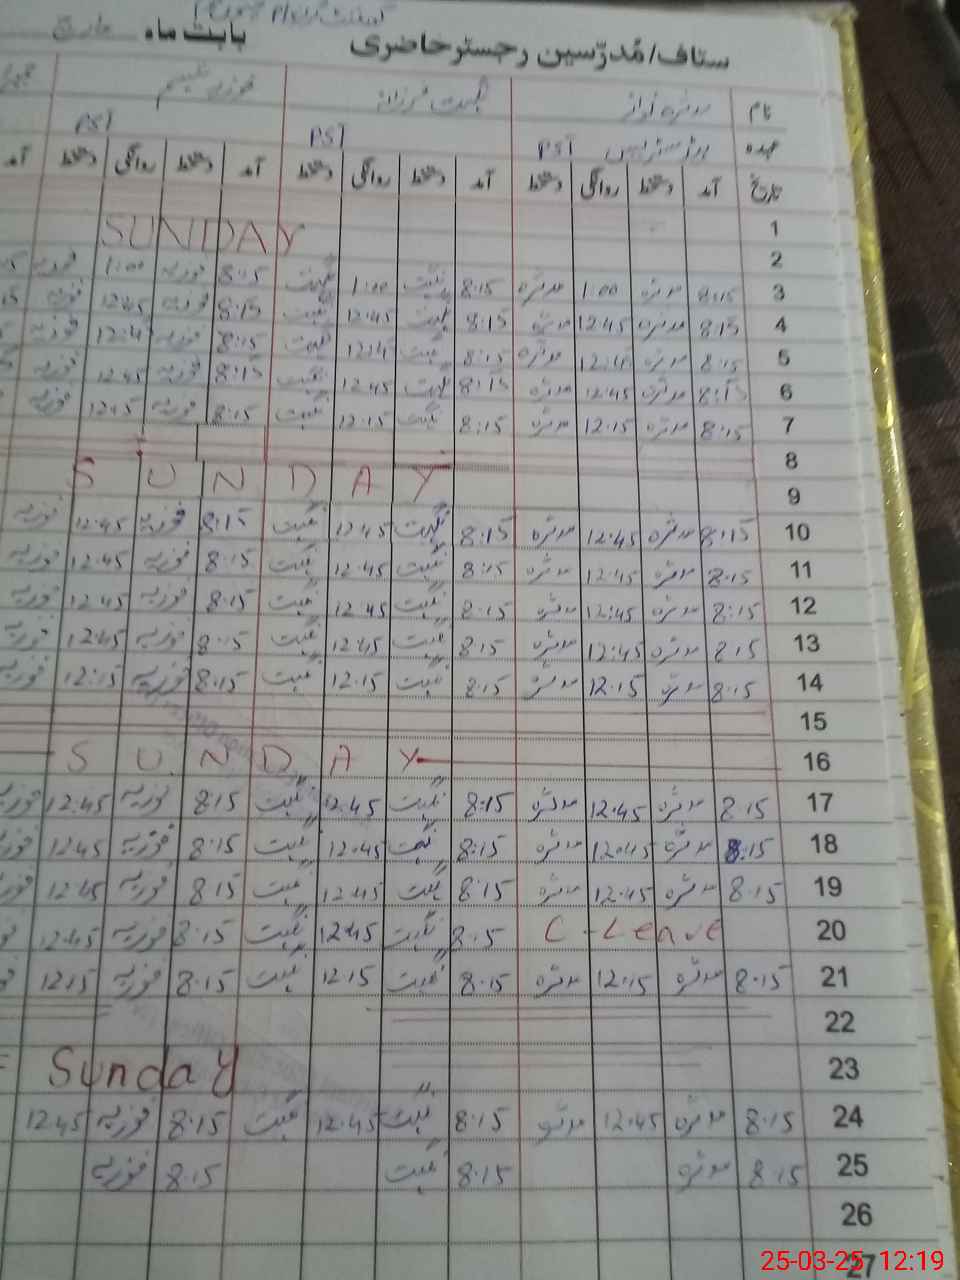 ستاف/مُدرّسین رجسٹر حاضری بابت ماہ مارچ
نام فوزیہ نسیم
عہدہ PST PST PST
تاریخ آمد دستخط روانگی دستخط آمد دستخط روانگی دستخط آمد دستخط روانگی دستخط آمد
1
2 SUNDAY
3 8:15 مدثرہ 1:00 مدثرہ 8:15 نگہت 1:00 نگہت 8:15 فوزیہ 1:00 فوزیہ
4 8:15 مدثرہ 12:45 مدثرہ 8:15 نگہت 12:45 نگہت 8:15 فوزیہ 12:45 فوزیہ
5 8:15 مدثرہ 12:45 مدثرہ 8:15 نگہت 12:45 نگہت 8:15 فوزیہ 12:45 فوزیہ
6 8:15 مدثرہ 12:45 مدثرہ 8:15 نگہت 12:45 نگہت 8:15 فوزیہ 12:45 فوزیہ
7 8:15 مدثرہ 12:15 مدثرہ 8:15 نگہت 12:15 نگہت 8:15 فوزیہ 12:15 فوزیہ
8
9 SUNDAY
10 8:15 مدثرہ 12:45 مدثرہ 8:15 نگہت 12:45 نگہت 8:15 فوزیہ 12:45 فوزیہ
11 8:15 مدثرہ 12:45 مدثرہ 8:15 نگہت 12:45 نگہت 8:15 فوزیہ 12:45 فوزیہ
12 8:15 مدثرہ 12:45 مدثرہ 8:15 نگہت 12:45 نگہت 8:15 فوزیہ 12:45 فوزیہ
13 8:15 مدثرہ 12:45 مدثرہ 8:15 نگہت 12:45 نگہت 8:15 فوزیہ 12:45 فوزیہ
14 8:15 مدثرہ 12:15 مدثرہ 8:15 نگہت 12:15 نگہت 8:15 فوزیہ 12:15 فوزیہ
15
16 SUNDAY
17 8:15 مدثرہ 12:45 مدثرہ 8:15 نگہت 12:45 نگہت 8:15 فوزیہ 12:45 فوزیہ
18 8:15 مدثرہ 12:45 مدثرہ 8:15 نگہت 12:45 نگہت 8:15 فوزیہ 12:45 فوزیہ
19 8:15 مدثرہ 12:45 مدثرہ 8:15 نگہت 12:45 نگہت 8:15 فوزیہ 12:45 فوزیہ
20 C-Leave 8:15 نگہت 12:45 نگہت 8:15 فوزیہ 12:45
21 8:15 مدثرہ 12:15 مدثرہ 8:15 نگہت 12:15 نگہت 8:15 فوزیہ 12:15
22
23 Sunday
24 8:15 مدثرہ 12:45 مدثرہ 8:15 نگہت 12:45 نگہت 8:15 فوزیہ 12:45
25 8:15 مدثرہ 8:15 نگہت 8:15 فوزیہ
26
27
25-03-25 12:19